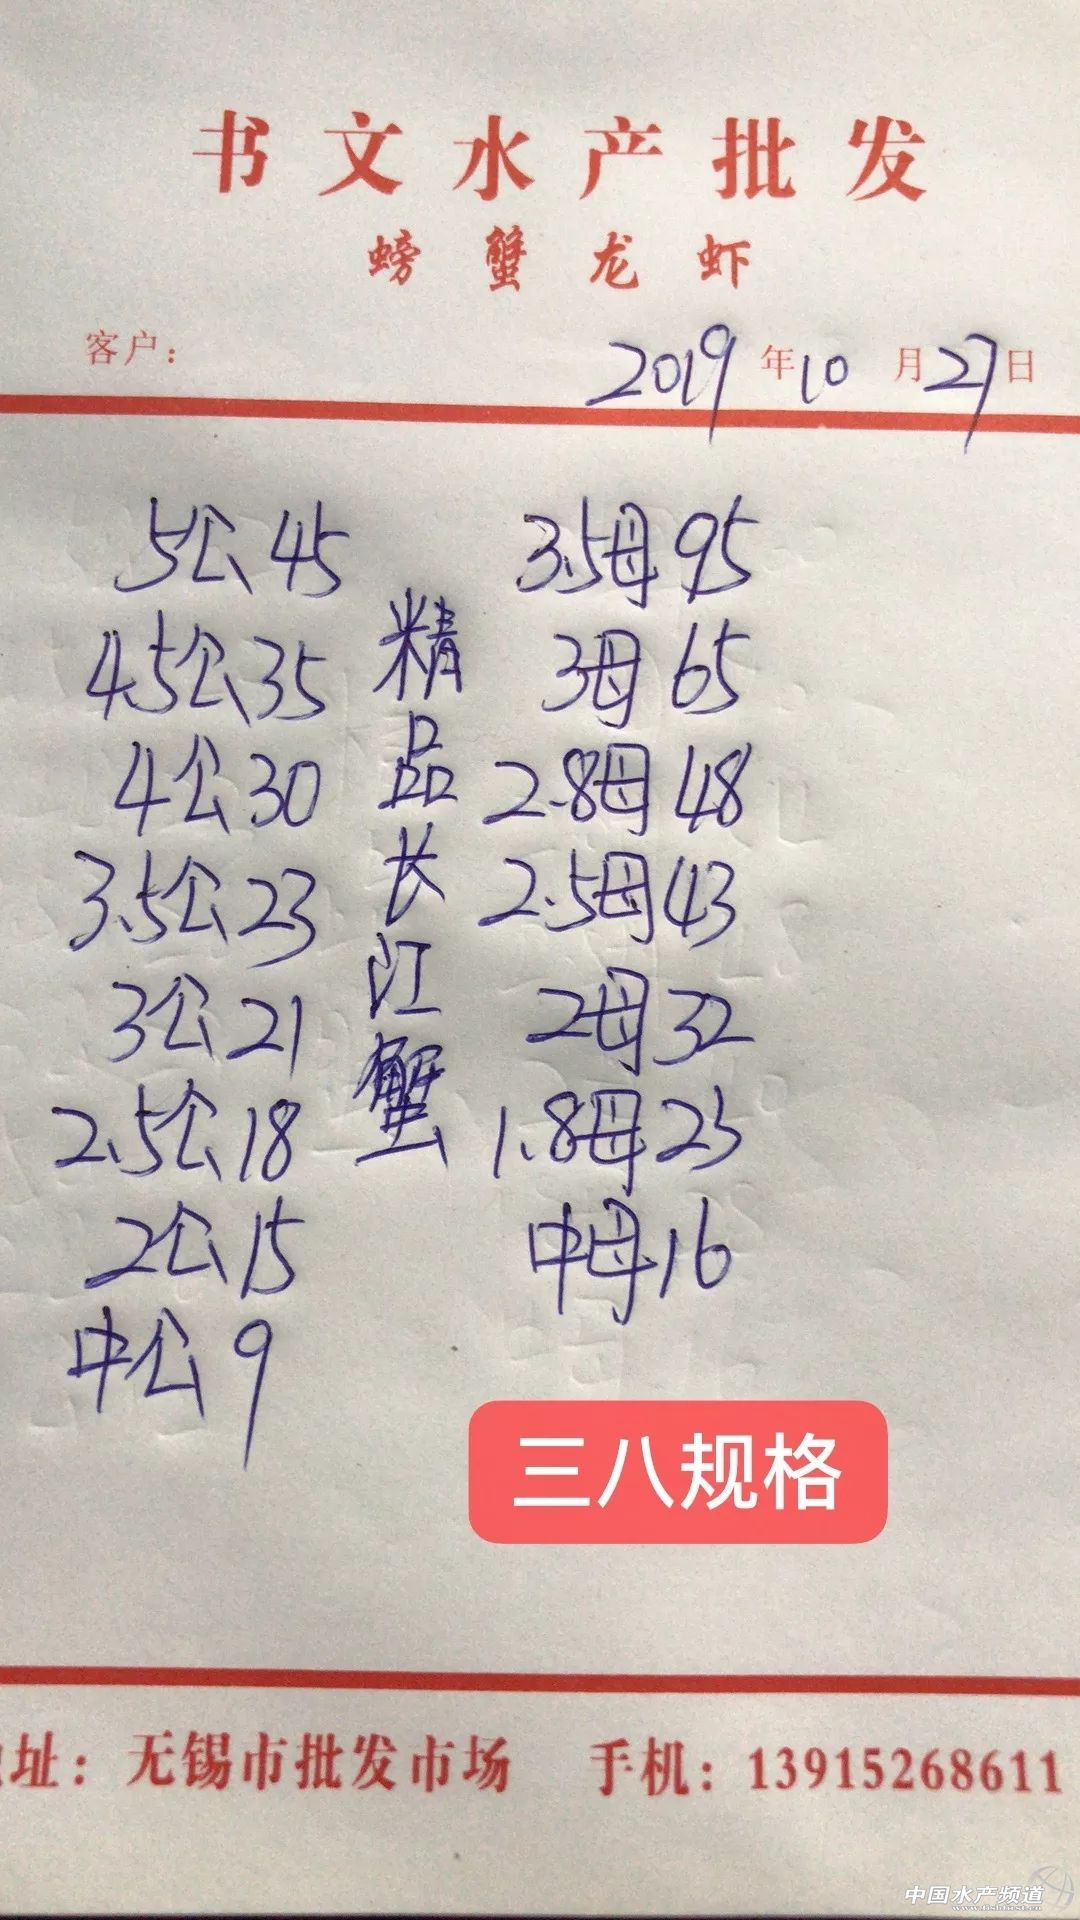 书文水产批发
螃蟹龙虾
客户：
2019年10月27日
5公45
4.5公35
4公30
3.5公23
3公21
2.5公18
2公15
中公9
精品长江蟹
3.5母95
3母65
2.8母48
2.5母43
2母32
1.8母23
中母16
三八规格
址：无锡市批发市场 手机：13915268611
中国水产频道
www.fishfirst.cn